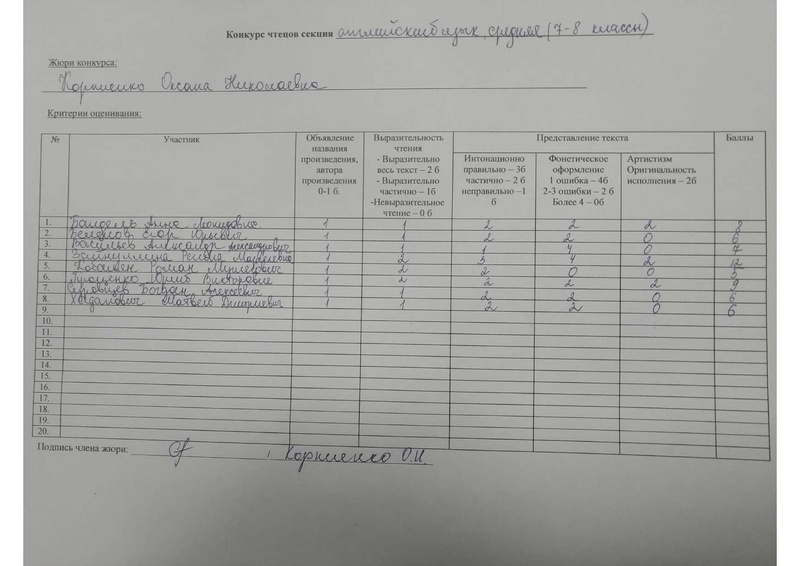 Конкурс чтецов секция английский язык, средняя (7-8 классы)
Жюри конкурса:
Корниенко Оксана Николаевна
Критерии оценивания:
№ Участник Объявление названия произведения, автора произведения 0-1 б. Выразительность чтения - Выразительно весь текст – 2 б - Выразительно частично – 1б -Невыразительное чтение – 0 б Представление текста Баллы
Интонационно правильно – 3б частично – 2 б неправильно –1 б Фонетическое оформление 1 ошибка – 4б 2-3 ошибки – 2 б Более 4 – 0б Артистизм Оригинальность исполнения – 2б
1. Анна Леонидовна 1 1 2 2 2 8
2. Егор Юрьевич 1 1 2 2 0 6
3. Васильев Александр Александрович 1 1 1 4 0 7
4. Зайнуллина Регина Марселевна 1 2 3 4 2 12
5. Роман 1 2 2 0 0 5
6. Юлия Викторовна 1 2 2 2 2 9
7. Богдан Алексеевич 1 1 2 2 0 6
8. Матвей Дмитриевич 1 1 2 2 0 6
9.
10.
11.
12.
13.
14.
15.
16.
17.
18.
19.
20.
Подпись члена жюри: Корниенко О.Н.